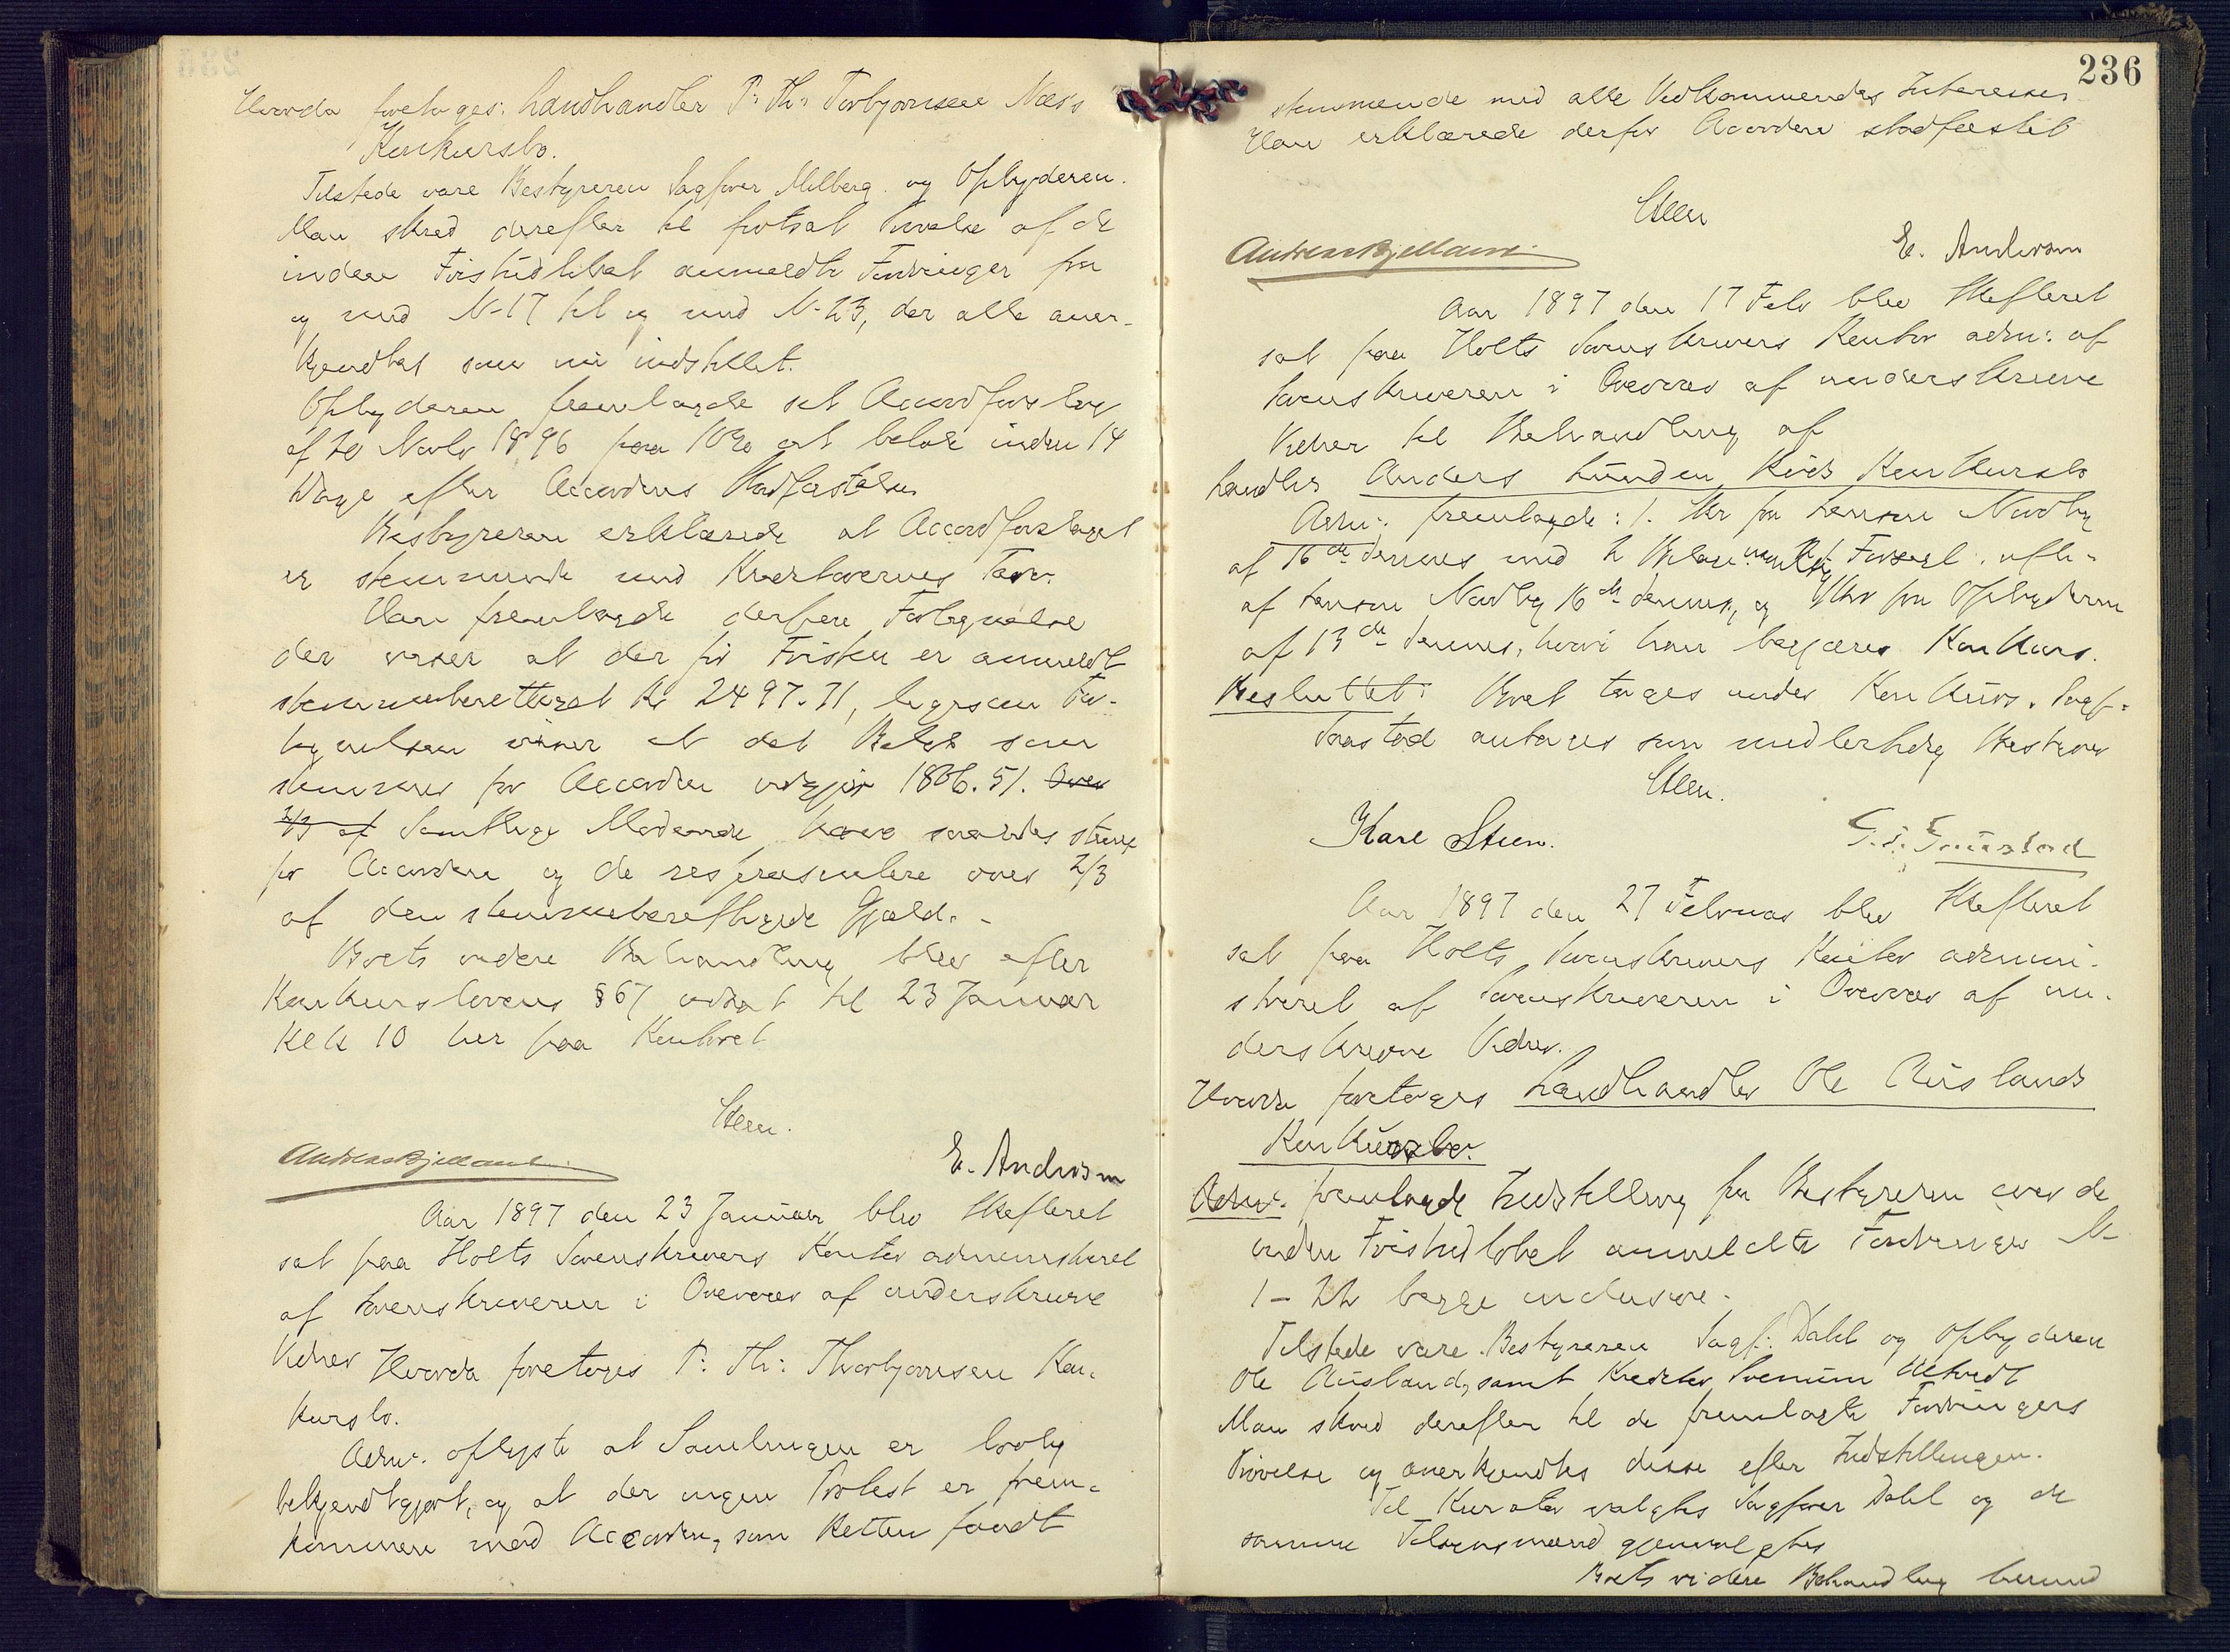 Hvorda foretoges: Landhandler P: Th: Torbjørnsens Næs's
Konkursbo.
Tilstede vare Bestyreren Sagfører Milberg og Opbyderen.
Man skred derefter til fortsat Prøvelse af de
inden Fristudløbet anmeldte Fordringer fra
og med N-17 til og med N-23, der alle aner-
kjendtes som nu indstillet.
Opbyderen fremlagde sit Accordforslag
af 20 Novbr 1896 paa 10% at betale inden 14
Dage efter Accordens Stadfæstelse.
Bestyreren erklærede at Accordforslaget
er stemmende med Kreditorernes Tarv.
Han fremlagde derhos Fortegnelse
der viser at der før Fristen er anmeldt
stemmeberettiget Kr 2497.71, ligesom For-
tegnelsen viser at det Beløb som
stemmer for Accorden udgjør 1806.51. Over
2/3 af Samtlige Mødende have saaledes stemt
for Accorden og de repræsentere over 2/3
af den stemmeberettigede Gjæld. -
Boets videre Behandling blev efter
Konkurslovens § 67 udsat til 23 Januar
Kl 10 her paa Kontoret
Steen.
Andreas Kjelland. E. Anderson
Aar 1897 den 23 Januar blev Skifteret
sat paa Holts Sorenskrivers Kontor administreret
af Sorenskriveren i Overvær af underskrevne
Vidner Hvorda foretoges P: Th: Thorbjørnsens Kon-
kursbo.
Adm. oplyste at Samlingen er lovlig
bekjendtgjort, og at der ingen Protest er frem-
kommen mod Accorden, som Retten fandt
236
stemmende med alle Vedkommendes Interesser
Han erklærede derfor Accorden stadfæstet
Steen
Andreas Kjelland. E. Anderson
Aar 1897 den 17 Febr blev Skifteret
sat paa Holts Sorenskrivers Kontor adm: af
Sorenskriveren i Overvær af underskrevne
Vidner til Behandling af
Landhlr Anders Konkursbo
Adm: fremlagde: 1. Skr fra Nordby
af 16de dennes med 2 Bilage
af Nordby 16de dennes, og Skr fra Opbyderen
af 13de dennes, hvori han begjærer Konkurs.
Besluttet: Boet tages under Konkurs. Sagf.
antages som midlertidig Bestyrer
Steen.
Karl Steen.
Aar 1897 den 27 Februar blev Skifteret
sat paa Holts Sorenskrivers Kontor admini-
streret af Sorenskriveren i Overvær af un-
derskrevne Vidner.
Hvorda foretoges Landhandler Ole Auslands
Konkursbo.
Adm. fremlagde Indstilling fra Bestyreren over de
inden Fristudløbet anmeldte Fordringer N-
1 - 22 begge inclusive.
Tilstede vare Bestyreren Sagf: Dahl og Opbyderen
Ole Ausland, samt Kreditor
Man skred derefter til de fremlagte Fordringers
Prøvelse og anerkjendtes disse efter Indstillingen.
Til Kurator valgtes Sagfører Dahl og de
samme Tilsynsmænd gjenvalgtes
Boets videre Behandling hermed